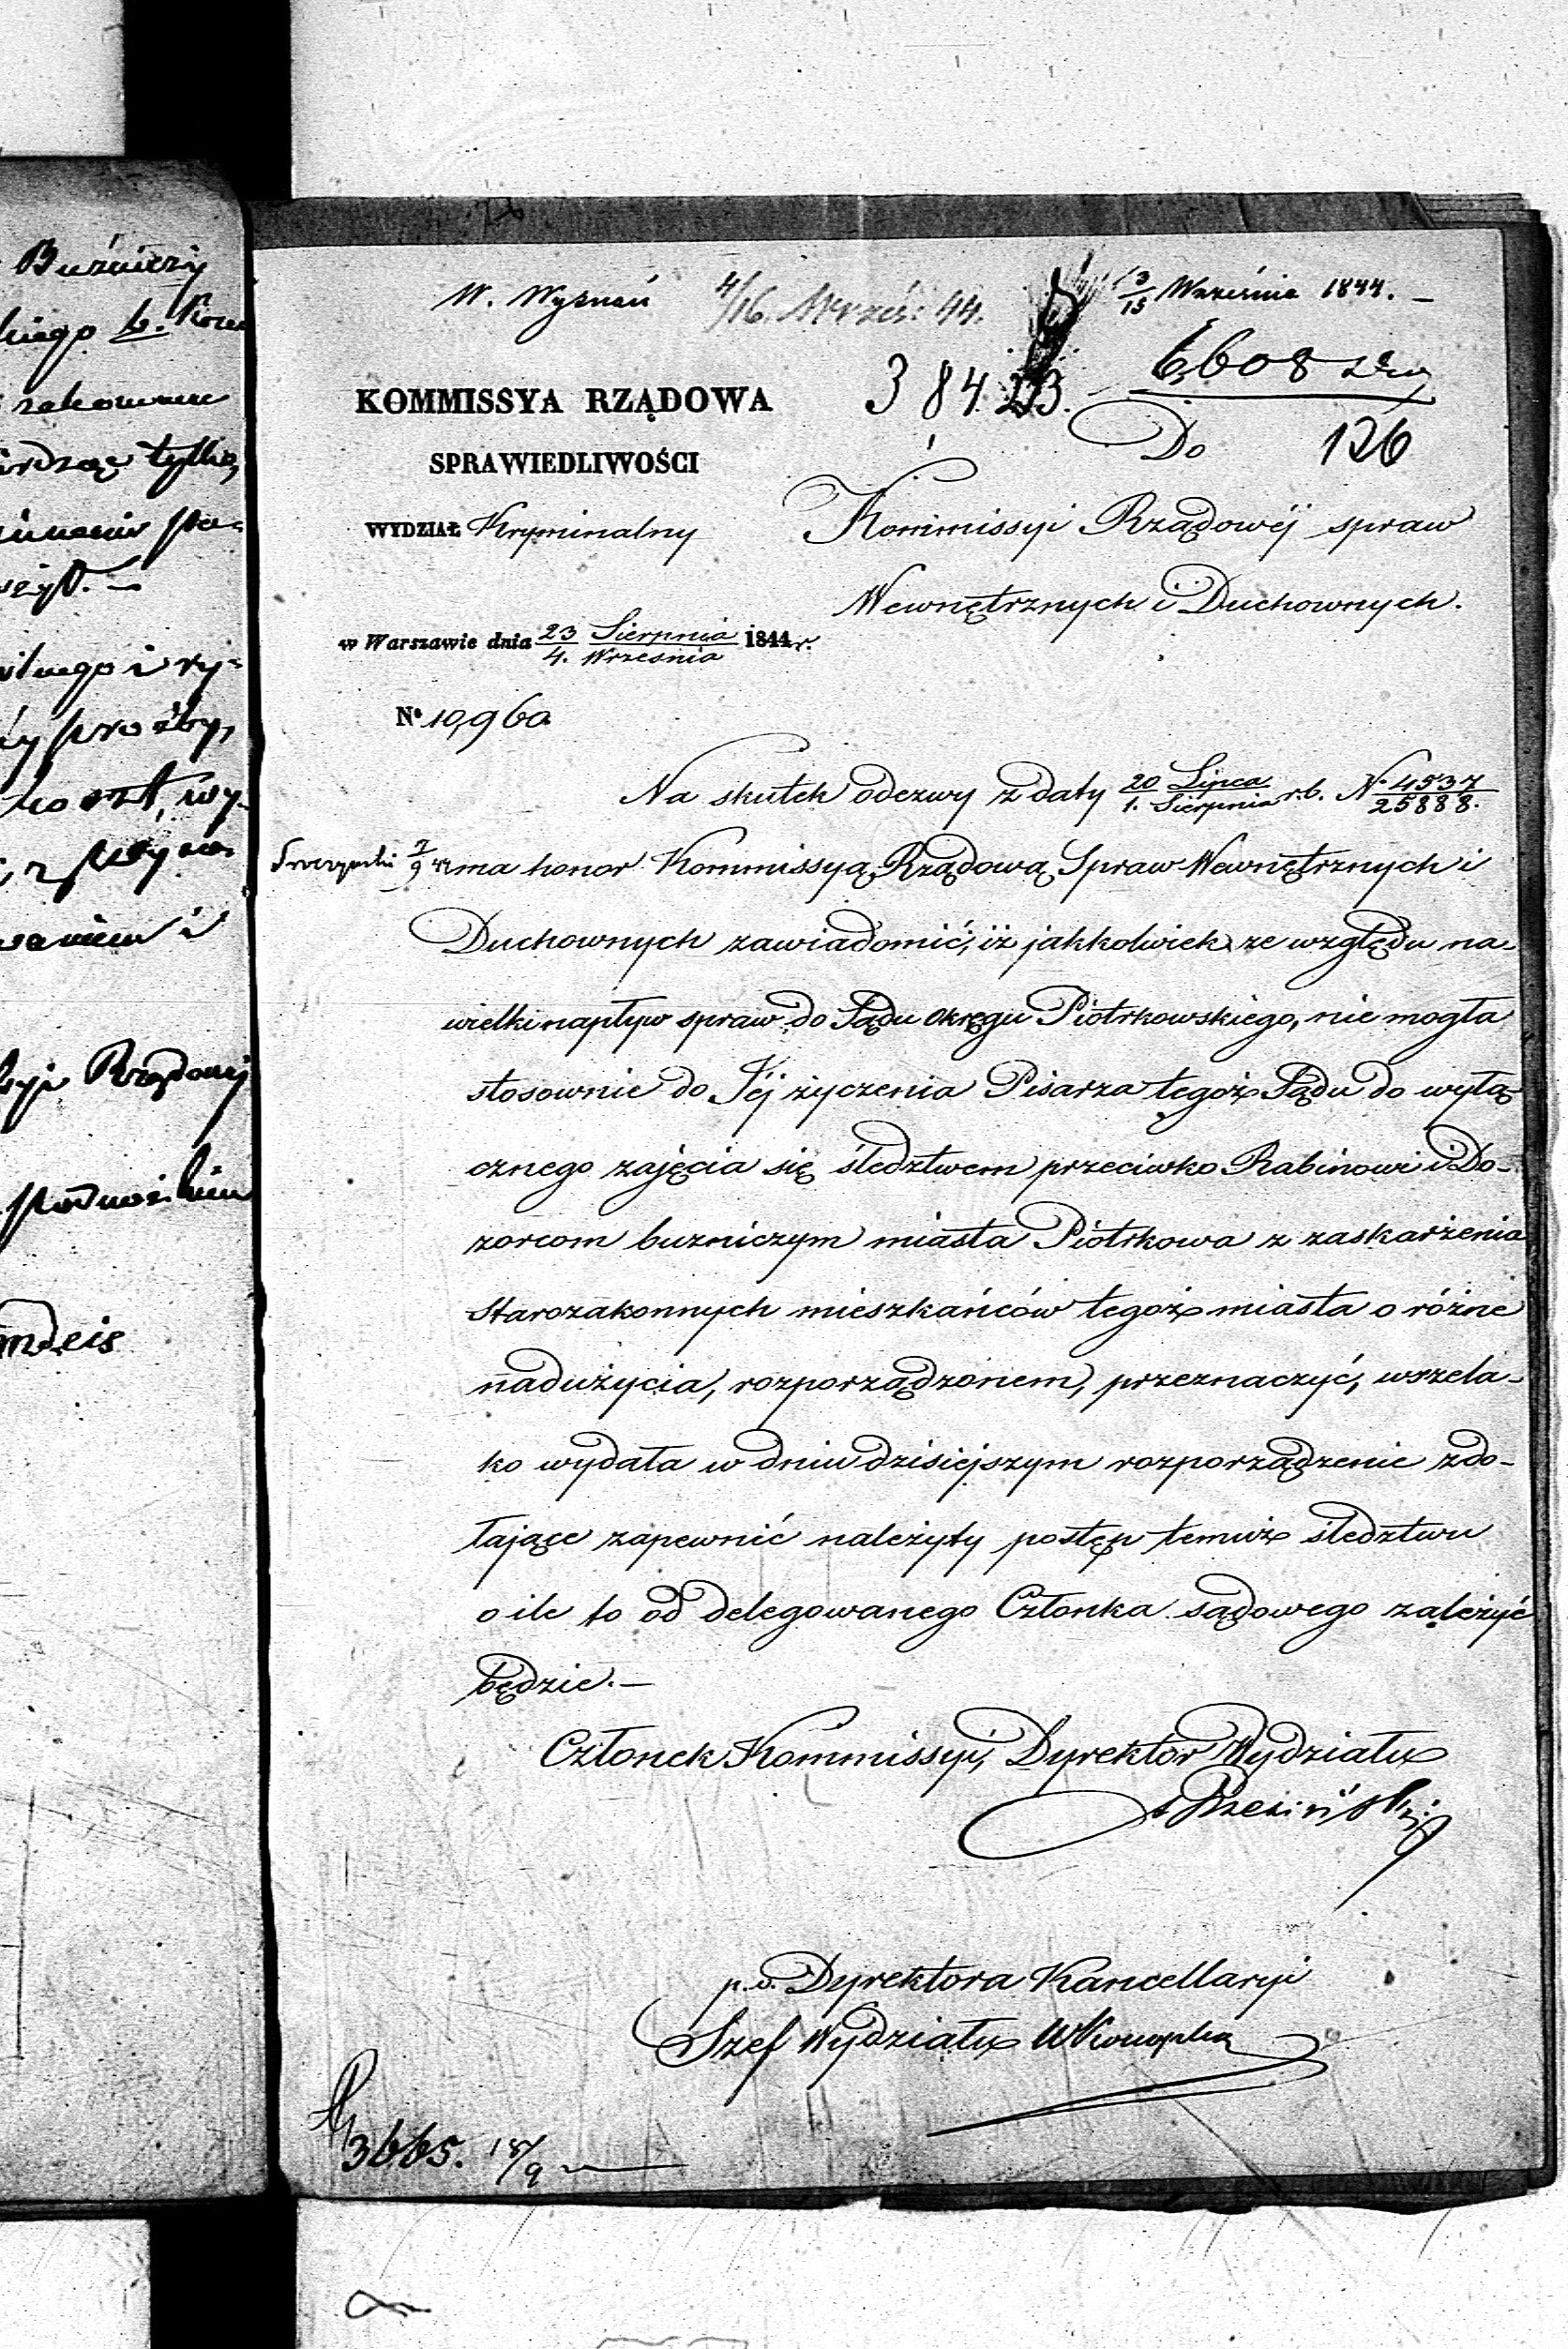 Buźniczy
rdząc tylko,
prośby,
koszt, wy-
Rządowej
W. Wyznań
4/16. Wrześ: 44.
3/15 Września 1844. –
6608
384
KOMMISSYA RZĄDOWA
SPRAWIEDLIWOŚCI
WYDZIAŁ Kryminalny
w Warszawie dnia 23 Sierpnia / 4. Września 1844 r.
Nº 10,960
Do 126
Kommissyi Rządowéj spraw
Wewnętrznych i Duchownych.
Na skutek odezwy z daty 20 Lipca / 1. Sierpnia r.b. Nº 4537 / 25888.
ma honor Kommissyą Rządową Spraw Wewnętrznych i
Duchownych zawiadomić, iż jakkolwiek ze względu na
wielki napływ spraw do Sądu Okręgu Piotrkowskiego, nie mogła
stosownie do Jéj życzenia Pisarza tegoż Sądu do wyłą
cznego zajęcia się śledztwem przeciwko Rabinowi i Do-
zorcom buzniczym miasta Piotrkowa z zaskarżenia
Starozakonnych mieszkańców tegoż miasta o różne
nadużycia, rozporządzonem, przeznaczyć, wszela-
ko wydała w dniu dzisiejszym rozporządzenie zdo-
łające zapewnić należyty postęp temuż śledztwu
o ile to od delegowanego Członka sądowego zależyć
będzie. –
Członek Kommissyi, Dyrektor Wydziału
p.o. Dyrektora Kancellaryi
Szef Wydziału
3665. 18/9